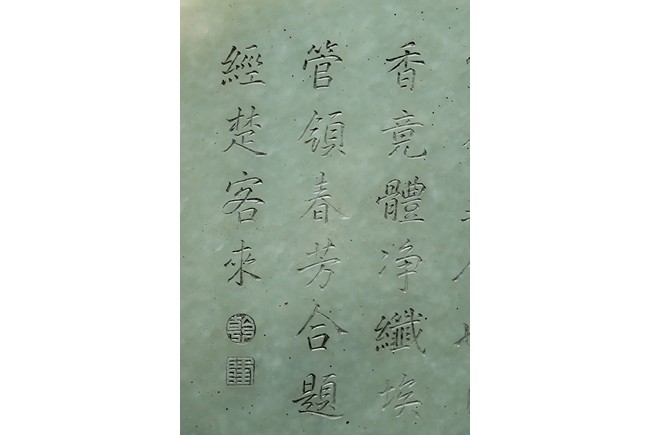 香竟體净纖埃
管領春芳合題
經楚客來